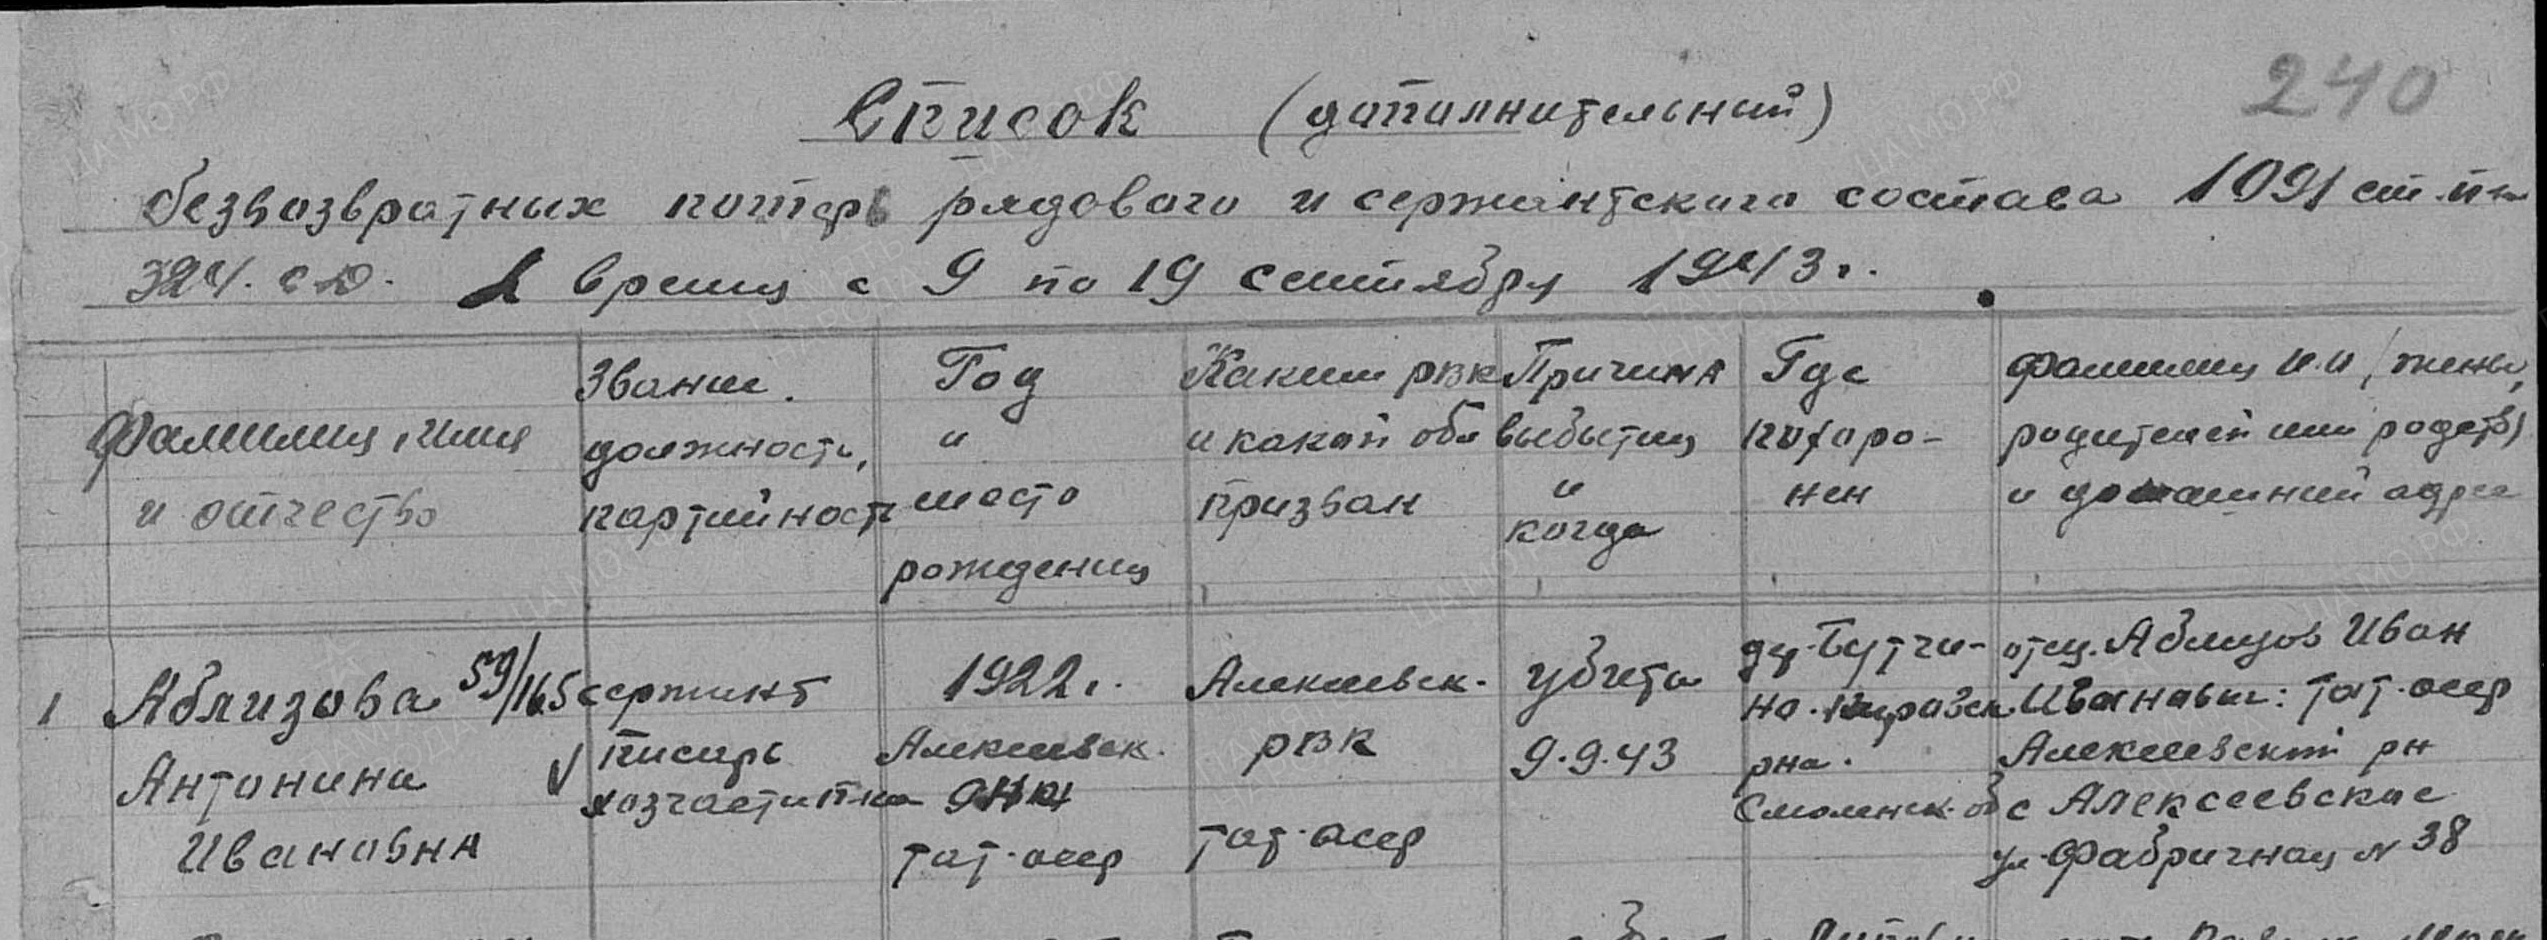 240
Список (дополнительный)
безвозвратных потерь рядового и сержантского состава 1091 стр. п-ка
324 сд. время с 9 по 19 сентября 1943 г.
Фамилия, имя
и отчество
Звание.
должность,
партийность
Год
и
место
рождения
Каким рвк
и какой обл
призван
Причина
выбытия
и
когда
Где
похоро-
нен
Фамилия и.и (жены,
родителей или родств)
и домашний адрес
1
Аблизова 59/165
Антонина
Ивановна
сержант
писарь
хозчасти п-ка
1922 г.
Алексеевск.
р-н
тат. асср
Алексеевск.
рвк
тат. асср
убита
9.9.43
д. Бутчи-
но. Кировск
р-на.
Смоленск. об
отец. Аблизов Иван
Иванович: тат. асср
Алексеевский рн
с Алексеевское
ул. Фабричная № 38